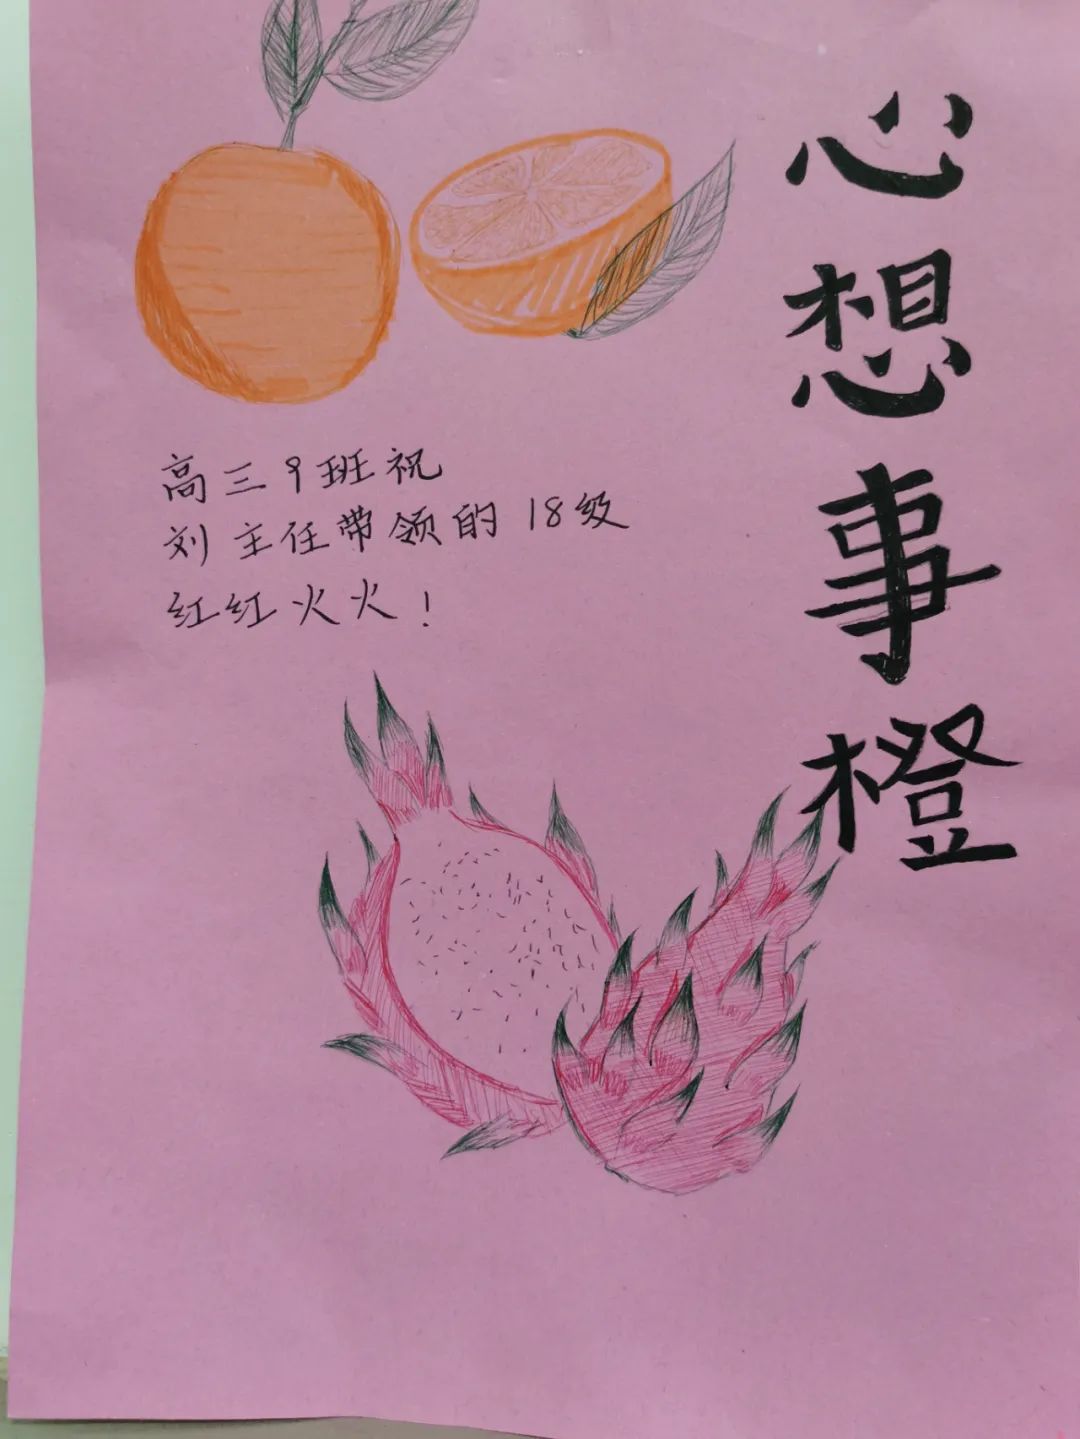 心想事橙
高三9班祝
刘主任带领的18级
红红火火!